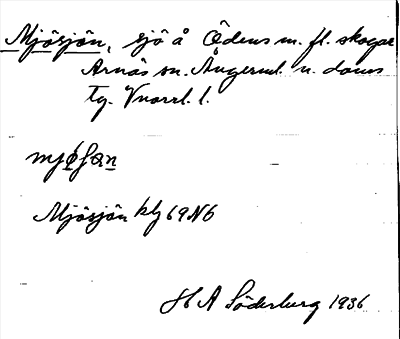 Mjösjön, sjö å Ödens m. fl. skogar
Arnäs sn. Ångerml. n. doms
tg. Vnorrl. l.
Mjösjön blz 69 N6
H A Söderburg 1936